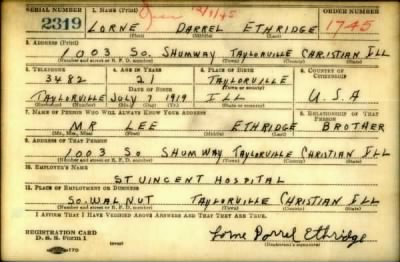 SERIAL NUMBER 1. NAME (Print) ORDER NUMBER
2319 LORNE DARREL ETHRIDGE 1745
12/9/45
(First) (Middle) (Last)
2. ADDRESS (Print)
1003 SO. SHUMWAY TAYLORVILLE CHRISTIAN ILL
(Number and street or R. F. D. number) (Town) (County) (State)
3. TELEPHONE 4. AGE IN YEARS 5. PLACE OF BIRTH 6. COUNTRY OF CITIZENSHIP
3482 21 TAYLORVILLE
DATE OF BIRTH (Town or county)
TAYLORVILLE JULY 7 1919 ILL U.S.A
(Exchange) (Number) (Mo.) (Day) (Yr.) (State or country)
7. NAME OF PERSON WHO WILL ALWAYS KNOW YOUR ADDRESS 8. RELATIONSHIP OF THAT PERSON
MR LEE ETHRIDGE BROTHER
(Mr., Mrs., Miss) (First) (Middle) (Last)
9. ADDRESS OF THAT PERSON
1003 SO. SHUMWAY TAYLORVILLE CHRISTIAN ILL
(Number and street or R. F. D. number) (Town) (County) (State)
10. EMPLOYER'S NAME
ST VINCENT HOSPITAL
11. PLACE OF EMPLOYMENT OR BUSINESS
SO. WALNUT TAYLORVILLE CHRISTIAN ILL
(Number and street or R. F. D. number) (Town) (County) (State)
I AFFIRM THAT I HAVE VERIFIED ABOVE ANSWERS AND THAT THEY ARE TRUE.
REGISTRATION CARD
D. S. S. Form 1 Lorne Darrel Ethridge
(Registrant's signature)